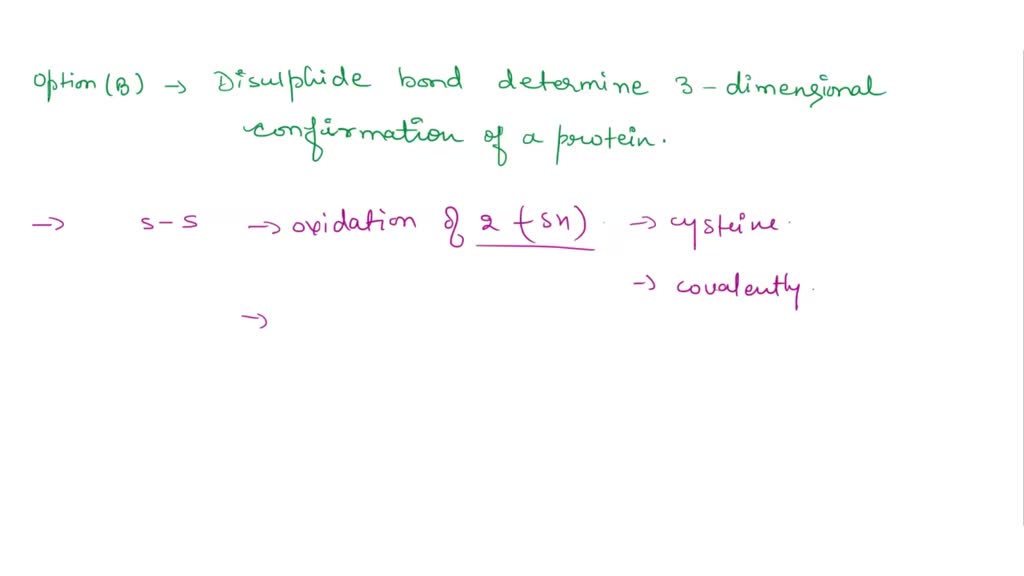 Option (B) → Disulphide bond determine 3-dimensional
confirmation of a protein.
→ S-S → oxidation of 2 (-SH) → cysteine.
→ covalently.
→